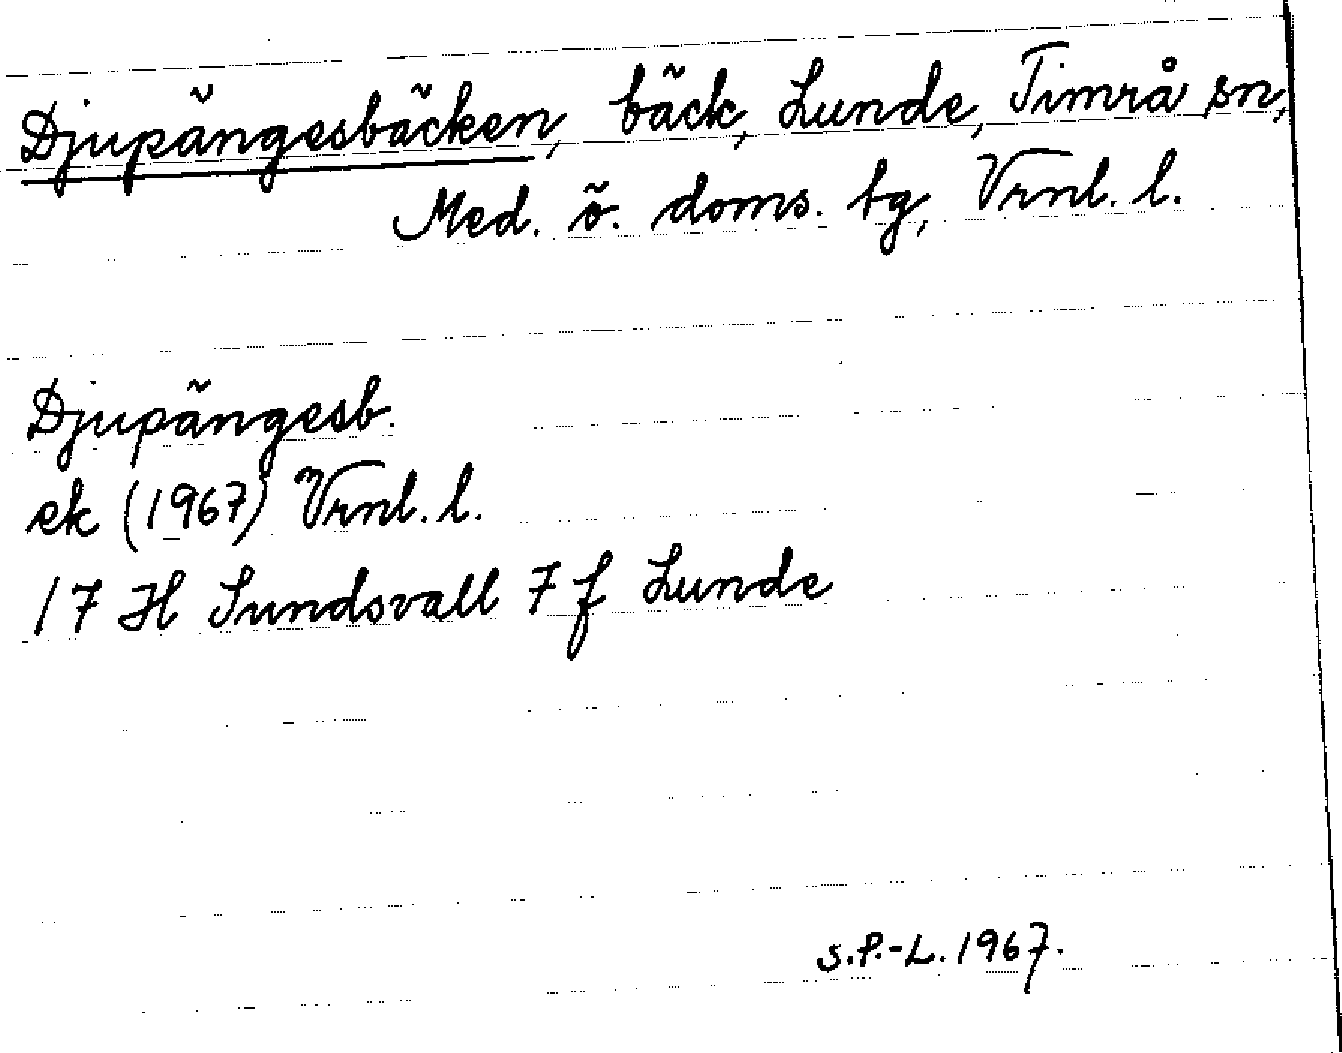 Djupängesbäcken, bäck, Lunde, Timrå sn,
Med. ö. doms. tg, Vrnl. l.
Djupängesb.
ek (1967) Vrnl. l.
17 H Sundsvall 7 f Lunde
S.P.-L. 1967.